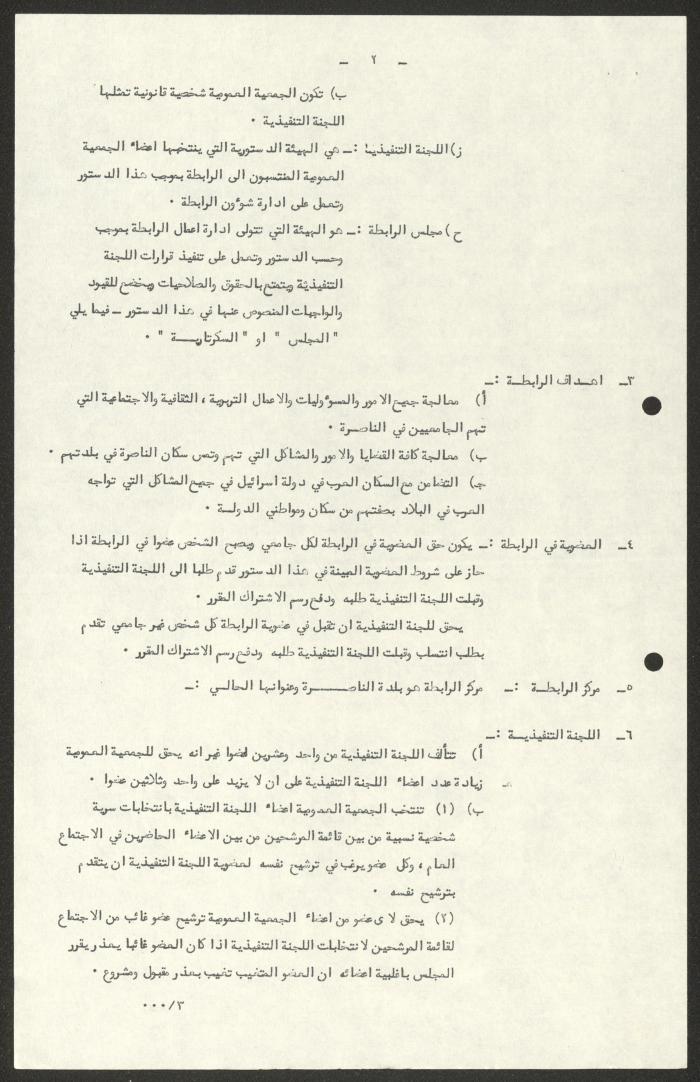 - ٢ -
ب) تكون الجمعية العمومية شخصية قانونية تمثلها
اللجنة التنفيذية .
ز) اللجنة التنفيذية :- هي الهيئة الدستورية التي ينتخبها اعضاء الجمعية
العمومية المنتسبون الى الرابطة بموجب هذا الدستور
وتعمل على ادارة شوءون الرابطة .
ح) مجلس الرابطة :- هو الهيئة التي تتولى ادارة اعمال الرابطة بموجب
وحسب الدستور وتعمل على تنفيذ قرارات اللجنة
التنفيذية ويتمتع بالحقوق والصلاحيات ويخضع للقيود
والواجبات المنصوص عنها في هذا الدستور - فيما يلي
" المجلس " او " السكرتاريــة " .
٣- اهـداف الرابطـة :-
أ) معالجة جميع الامور والمسوءوليات والاعمال التربوية ، الثقافية والاجتماعية التي
تهم الجامعيين في الناصـرة .
ب) معالجة كافة القضايا والامور والمشاكل التي تهم وتمس سكان الناصرة في بلدتهم .
جـ) التضامن مع السكان العرب في دولة اسرائيل في جميع المشاكل التي تواجه
العرب في البلاد بصفتهم من سكان ومواطني الدولـة .
٤- العضوية في الرابطة :- يكون حق العضوية في الرابطة لكل جامعي ويصبح الشخص عضوا في الرابطة اذا
حاز على شروط العضوية المبينة في هذا الدستور قدم طلبا الى اللجنة التنفيذية
وقبلت اللجنة التنفيذية طلبه ودفع رسم الاشتراك المقرر .
يحق للجنة التنفيذية ان تقبل في عضوية الرابطة كل شخص غير جامعي تقدم
بطلب انتساب وقبلت اللجنة التنفيذية طلبه ودفع رسم الاشتراك المقرر .
٥- مركز الرابطـة :- مركز الرابطة هو بلدة الناصـــــرة وعنوانها الحالـي :-
٦- اللجنة التنفيذيـة :-
أ) تتألف اللجنة التنفيذية من واحد وعشرين عضوا غير انه يحق للجمعية العمومية
زيادة عدد اعضاء اللجنة التنفيذية على ان لا يزيد على واحد وثلاثين عضوا .
ب) (١) تنتخب الجمعية العمومية اعضاء اللجنة التنفيذية بانتخابات سرية
شخصية نسبية من بين قائمة المرشحين من بين الاعضاء الحاضرين في الاجتماع
العام ، وكل عضو يرغب في ترشيح نفسه لعضوية اللجنة التنفيذية ان يتقدم
بترشيح نفسه .
(٢) يحق لاى عضو من اعضاء الجمعية العمومية ترشيح عضو غائب من الاجتماع
لقائمة المرشحين لانتخابات اللجنة التنفيذية اذا كان العضو غائبا بعذر يقرر
المجلس باغلبية اعضائه ان العضو المتغيب تغيب بعذر مقبول ومشروع .
٣/٠٠٠